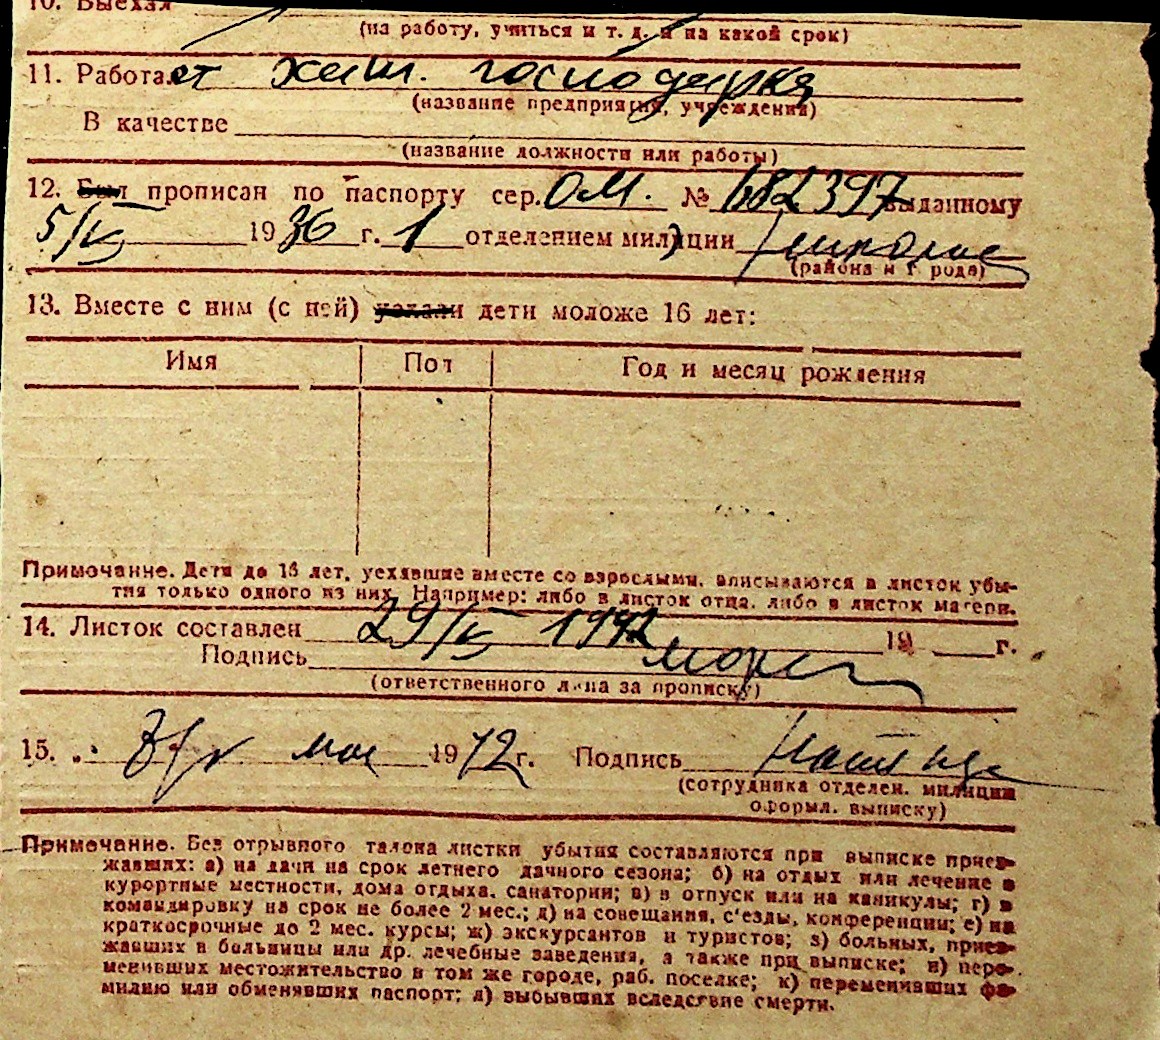 10. Выехал
(на работу, учиться и т. д. и на какой срок)
11. Работает хат. господарка
(название предприятия, учреждения)
В качестве
(название должности или работы)
12. Был прописан по паспорту сер. ОМ. № 682397 выданному
5/IV 1936 г. 1 отделением милиции
(района и города)
13. Вместе с ним (с ней) уехали дети моложе 16 лет:
Имя Пол Год и месяц рождения
Примечание. Дети до 16 лет, уехавшие вместе со взрослыми, вписываются в листок убы-
тия только одного из них. Например: либо в листок отца, либо в листок матери.
14. Листок составлен 29/IV 1942 19 г.
Подпись
(ответственного лица за прописку)
15. мая 1942 г. Подпись
(сотрудника отделен. милиции
оформл. выписку)
Примечание. Без отрывного талона листки убытия составляются при выписке приез-
жавших: а) на дачи на срок летнего дачного сезона; б) на отдых или лечение в
курортные местности, дома отдыха, санатории; в) в отпуск или на каникулы; г) в
командировку на срок не более 2 мес.; д) на совещания, с'езды, конференции; е) на
краткосрочные до 2 мес. курсы; ж) экскурсантов и туристов; з) больных, приез-
жавших в больницы или др. лечебные заведения, а также при выписке; и) пере-
менивших местожительство в том же городе, раб. поселке; к) переменивших фа-
милию или обменявших паспорт; л) выбывших вследствие смерти.